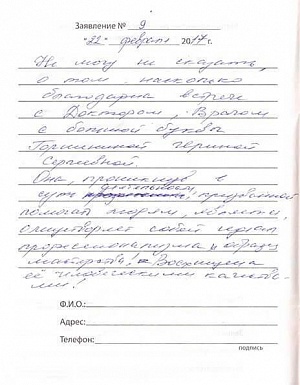 Заявление № 9
"22" февраля 2017 г.
Не могу не сказать,
о том насколько
благодарна встрече
с Доктором, Врачом
с большой буквы
Сергеевной.
Она, проникнув в
суть призванной
помогать людям,
олицетворяет собой идеал
профессионализма и образец
мастерства! Восхищена
её человеческими качества-
ми!
Ф.И.О.:
Адрес:
Телефон:
подпись